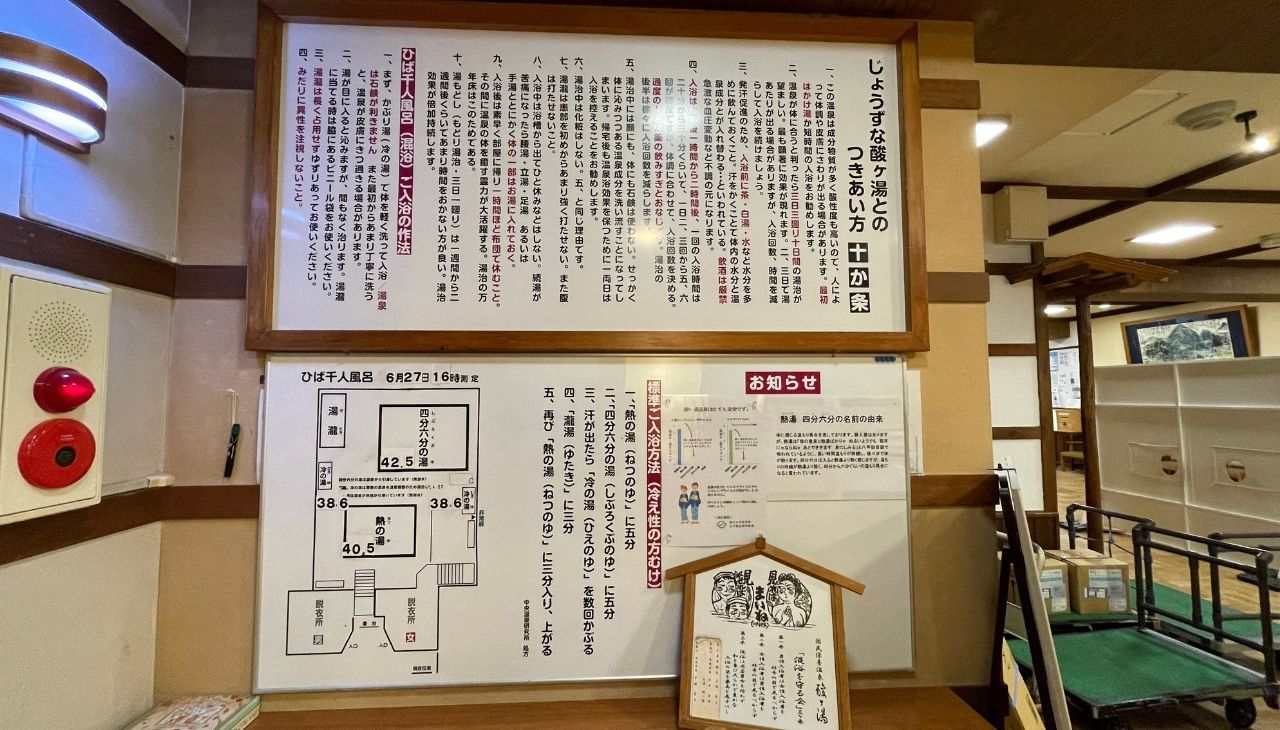 じょうずな酸ヶ湯との
つきあい方 十か条
一、この温泉は成分物質が多く酸性度も高いので、人によ
って体調や皮膚にさわりが出る場合があります。最初
はかけ湯か短時間の入浴をお勧めします。
二、温泉が体に合うと判ったら三日三廻り十日間の湯治が
望ましい。最も顕著に効果が現れます。二、三日で湯
あたりが出る場合がありますが、入浴回数、時間を減
らして入浴を続けましょう。
三、発汗促進のため、入浴前に茶・白湯・水など水分を多
めに飲んでおくこと。汗をかくことで体内の水分と温
泉成分とが入れ替わる…といわれている。飲酒は厳禁
急激な血圧変動など不調の元になります。
四、入浴は
後一時間から二時間後、一回の入浴時間は
二十分から三十分くらいで、一日二、三回から五、六
回が限度ですが、体調に合わせて、入浴回数を決める。
過度の
薬の飲みすぎとおなじ
湯治の
後半は徐々に入浴回数を減らします
五、湯治中には顔にも、体にも石鹸は使わない。せっかく
体に沁みつつある温泉成分を洗い流すことになってし
まいます。帰宅後も温泉浴効果を保つために一両日は
入浴を控えることをお勧めします。
六、湯治中は化粧はしない。五、と同じ理由です。
七、湯瀧は患部を初めからあまり強く打たせない。また腹
は打たせない。
八、入浴中は浴槽から出てひと休みなどはしない。続湯が
苦痛になったら腰湯・立湯・足湯 あるいは
手湯ととにかく体の一部はお湯に入れておく。
九、入浴後は素早く部屋に帰り一時間ほど布団で休むこと。
その間に温泉の体を癒す霊力が大活躍する。湯治の万
年床はこのためである。
十、湯もどし（もどり湯治・三日一廻り）は一週間から二
週間後くらいであまり時間をおかない方が良い。湯治
効果が倍加持続します。
ひば千人風呂（混浴）ご入浴の作法
一、まず、かぶり湯（冷の湯）で体を軽く洗って入浴／湯泉
は石鹸が利きません また最初からあまり丁寧に洗う
と、温泉が皮膚にさつ過ぎる場合があります。
二、湯が目に入ると沁みますが、間もなく治ります。湯瀧
に当てる時は脇にあるビニール袋をお使いください。
三、湯瀧は長く占用せずゆずりあってお使いください。
四、みだりに異性を注視しないこと。
ひば千人風呂 6月27日16時測定
湯瀧
四分六分の湯
42.5
冷の湯
38.6
熱の湯
40.5
冷の湯
38.6
脱衣所
男
番台
入口
入口
脱衣所
女
現在位置
標準ご入浴方法（冷え性の方むけ）
一、「熱の湯（ねつのゆ）」に五分
二、「四分六分の湯（しぶろくぶのゆ）」に五分
三、汗が出たら「冷の湯（ひえのゆ）」を数回かぶる
四、「瀧湯（ゆたき）」に三分
五、再び「熱の湯（ねつのゆ）」に三分入り、上がる
中央温泉研究所 処方
お知らせ
熱湯 四分六分の名前の由来
見ればまいね
国民保養温泉 酸ヶ湯
「混浴を守る会」三ヶ条